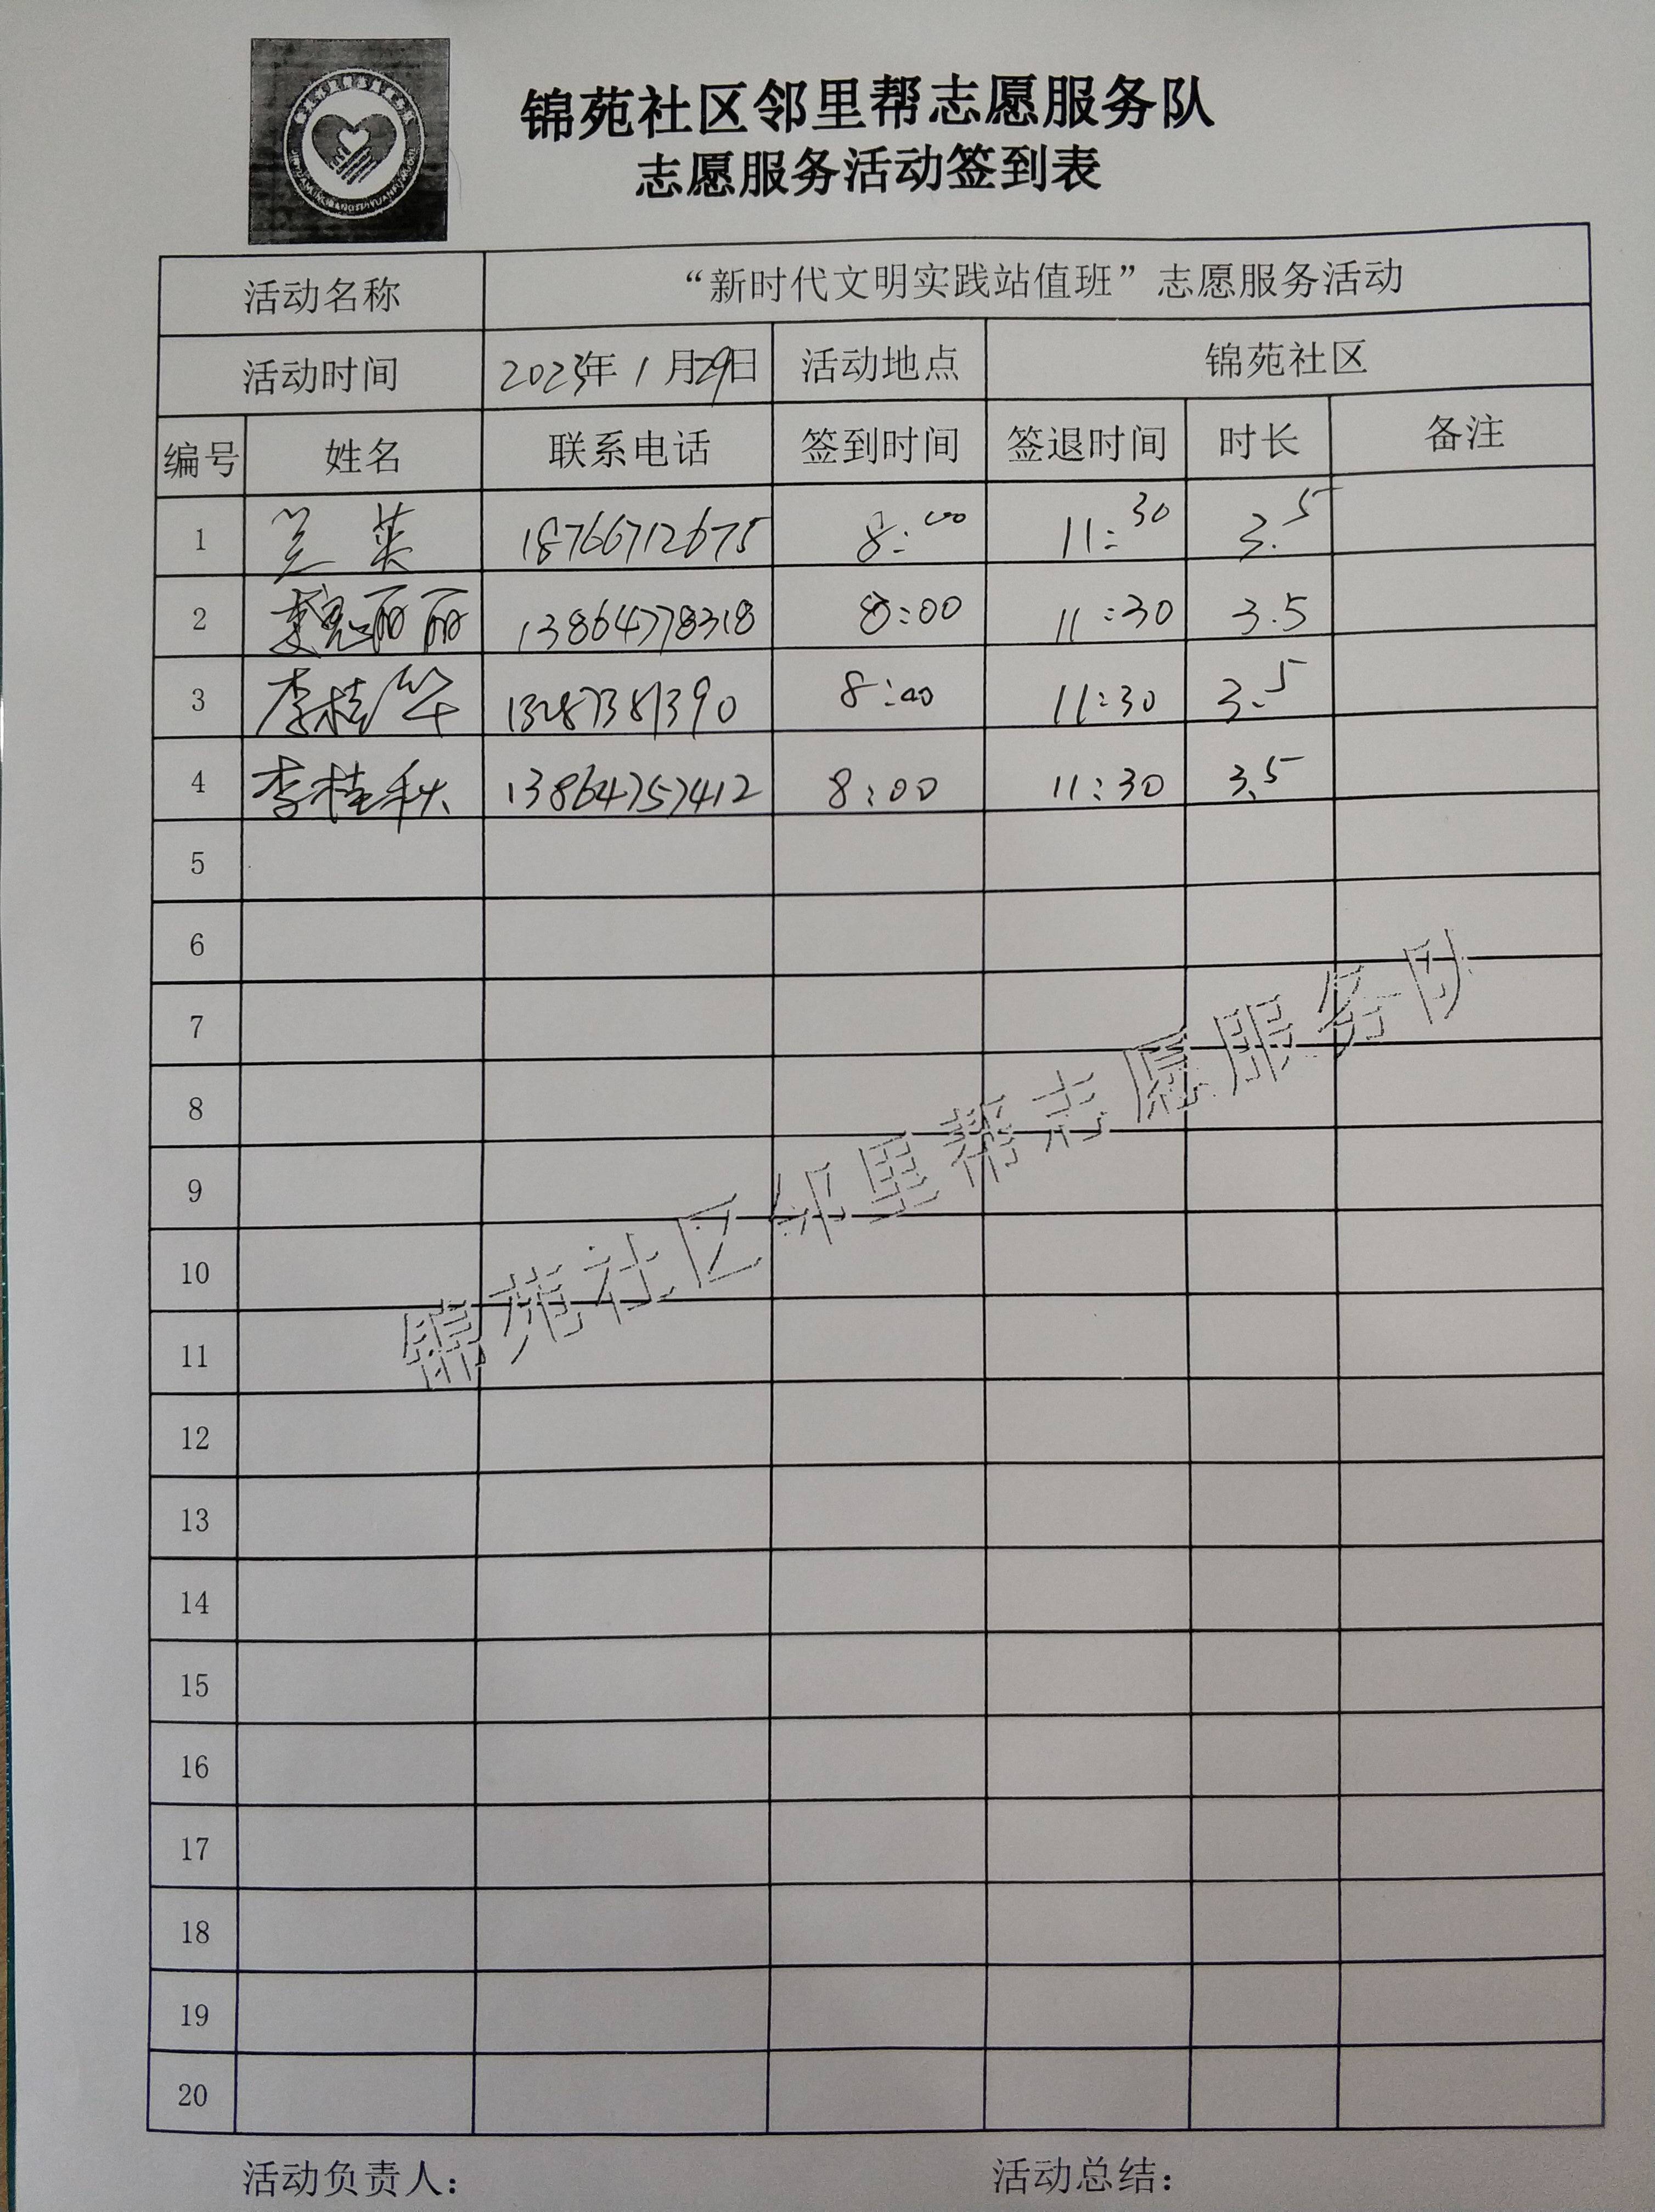 锦苑社区邻里帮志愿服务队
志愿服务活动签到表
活动名称 “新时代文明实践站值班”志愿服务活动
活动时间 2023年 1 月29日 活动地点 锦苑社区
编号 姓名 联系电话 签到时间 签退时间 时长 备注
1 兰英 18766712675 8:00 11:30 3.5
2 魏丽丽 13864778318 8:00 11:30 3.5
3 李桂华 13287381390 8:00 11:30 3.5
4 李桂秋 13864757412 8:00 11:30 3.5
5
6
7
8
9
10
11
12
13
14
15
16
17
18
19
20
锦苑社区邻里帮志愿服务队
活动负责人: 活动总结: